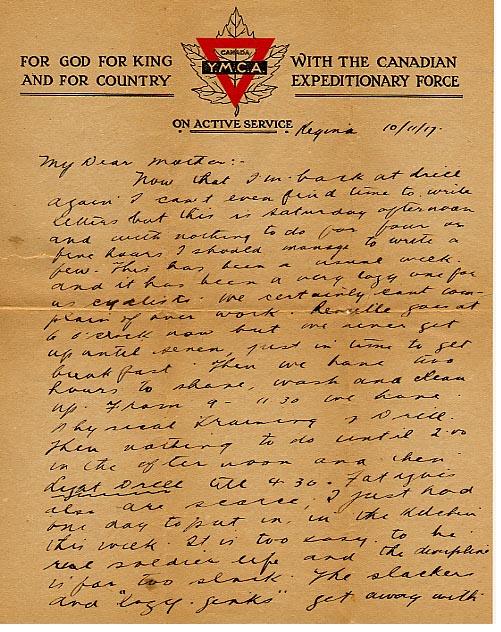 FOR GOD FOR KING
AND FOR COUNTRY
CANADA
Y.M.C.A.
WITH THE CANADIAN
EXPEDITIONARY FORCE
ON ACTIVE SERVICE
Regina 10/11/17.
My Dear Mother:-
Now that I'm back at drill
again I can't even find time to write
letters but this is Saturday afternoon
and with nothing to do for four or
five hours I should manage to write a
few. This has been a usual week.
and it has been a very lazy one for
us cyclists. We certainly cant com-
plain of over work. Reveille goes at
6 o'clock now but we never get
up until seven, just in time to get
breakfast. Then we have two
hours to shave, wash and clean
up. From 9 - 11.30 we have
Physical Training & Drill.
Then nothing to do until 2.00
in the afternoon and then
Light Drill till 4.30. Fatigues
also are scarce, I just had
one day to put in, in the kitchen
this week. It is too easy to be
real soldier life and the discipline
is far too slack. The slackers
and "lazy-ginks" get away with